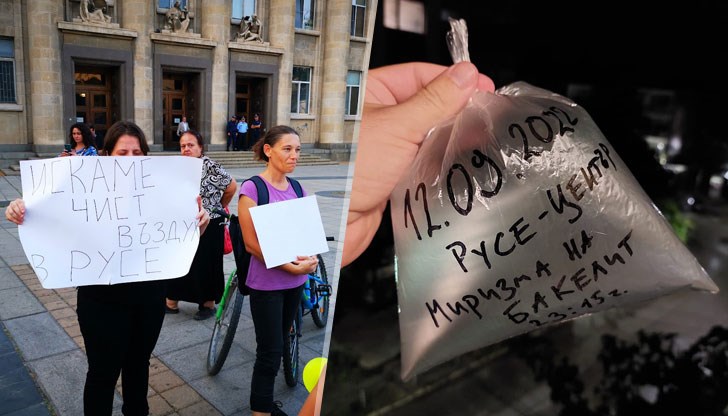 ИСКАМЕ
ЧИСТ
ВЪЗДУХ
В РУСЕ
12.09.2022
РУСЕ-ЦЕНТЪР
МИРИЗМА НА
БАКЕЛИТ
23:15 г.